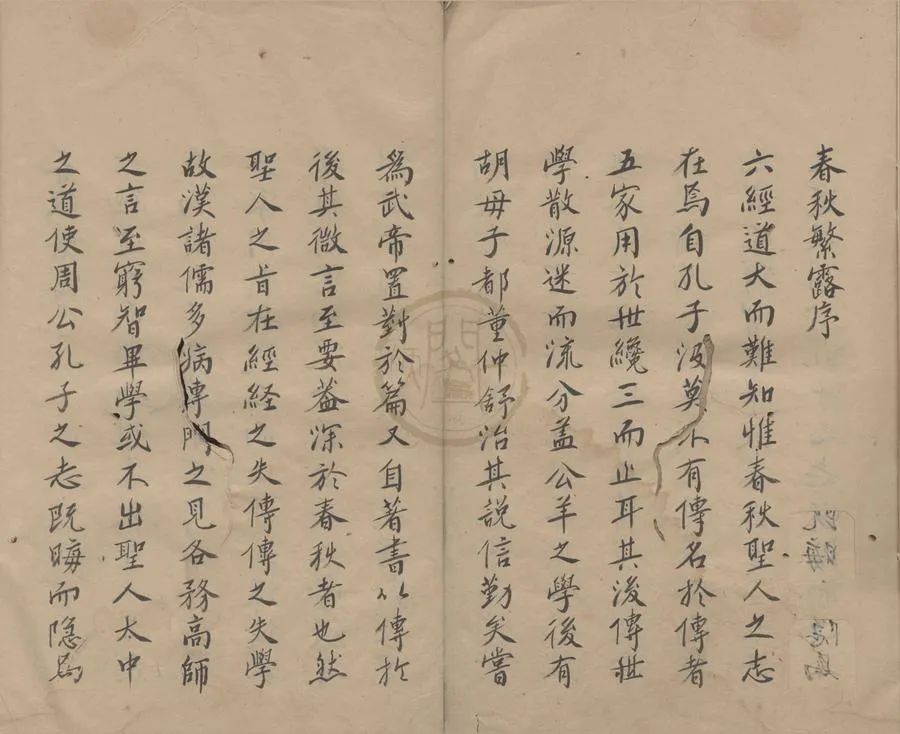 春秋繁露序
六經道大而難知惟春秋聖人之志
在焉自孔子沒莫不有傳名於傳者
五家用於世纔三而止耳其後傳世
學散源迷而流分盖公羊之學後有
胡毋子都董仲舒治其說信勤矣嘗
爲武帝置對於篇又自著書以傳於
後其微言至要葢深於春秋者也然
聖人之旨在經經之失傳傳之失學
故漢諸儒多病專門之見各務高師
之言至窮智畢學或不出聖人太中
之道使周公孔子之志既晦而隱焉